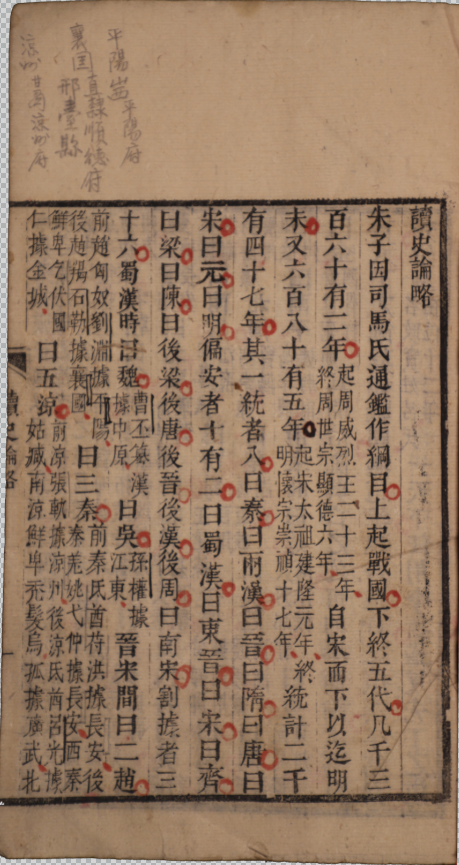 平陽並平陽府
襄国直隸順德府
邢臺縣
涼州葛涼州府
讀史論略
朱子因司馬氏通鑑作綱目上起戰國下終五代凡千三
百六十有二年起周威烈王二十三年終周世宗顯德六年自宋而下以迄明
末又六百八十有五年起宋太祖建隆元年終明懷宗崇禎十七年統計二千
有四十七年其一統者八曰秦曰兩漢曰晉曰隋曰唐曰
宋曰元曰明偏安者十有二曰蜀漢曰東晉曰宋曰齊
曰梁曰陳曰後梁後唐後晉後漢後周曰南宋割據者三
十六蜀漢時曰魏曹丕篡漢據中原曰吳孫權據江東晉宋間曰二趙
前趙匈奴劉淵據平陽後趙羯石勒據襄國曰三秦前秦氐酋苻洪據長安後秦羌姚弋仲據長安西秦
鮮卑乞伏國仁據金城曰五涼前涼張軌據涼州後涼氐酋呂光據姑臧南涼鮮卑禿髮烏孤據廣武北
讀史論略